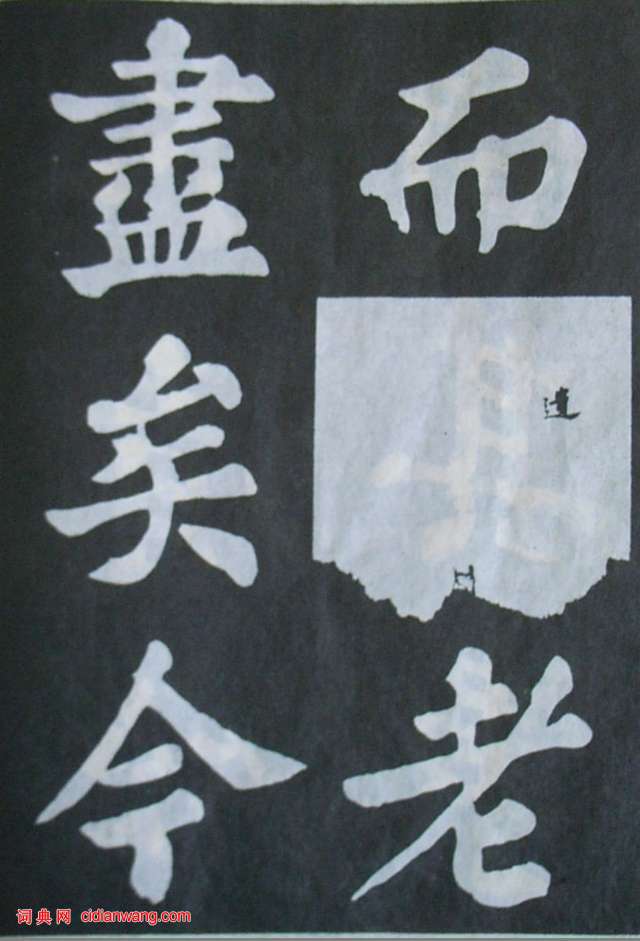 而遣老
盡矣今
词典网 cidianwang.com